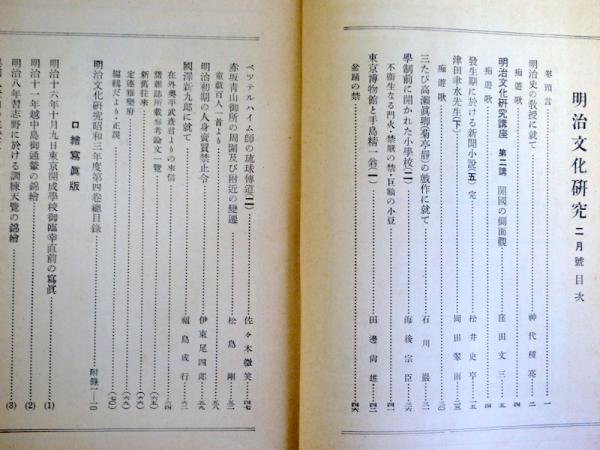 明治文化研究 二月號目次
卷頭言……一
明治史の教授に就て……神代種亮…二
痴遊歌……四
明治文化研究講座 第二講 開國の側面觀……窪田文三…五
痴遊歌……四
發生期に於ける新聞小説(五)完……松井史亭…一五
津田聿水先生(下)……岡田翠雨…二三
痴遊歌……三〇
三たび高瀬眞卿(菊亭靜)の戲作に就て……石川巖…三一
學制前に開かれた小學校(二)……海後宗臣…三六
不衞生なる門火・禁厭の禁・巨蹈の小豆……四一
東京博物館と手島精一翁(一)……田邊尚雄…四二
盆踊の禁……四六
ベッテルハイム師の琉球傳道(二)……佐々木微笑…四七
赤坂青山御所の周圍及び附近の變遷……松島剛…五二
童戲百人一首より……五八
明治初期の人身賣買禁止令……伊東尾四郎…五九
國澤新九郎に就て……福島成行…六二
在外奥平武彦君よりの來信……六四
諸雜誌所載參考論文一覽……(六五)
新舊往來……(六六)
定運雅樂府……(六九)
編輯だより・正誤……(七〇)
明治文化研究昭和三年度第四卷總目錄……附錄一―一〇
口繪寫眞版
明治十六年十月九日東京開成學校御臨幸直前の寫眞……(1)
明治十一年越中島御通輦の錦繪……(2)
明治八年習志野に於ける調練天覽の錦繪……(3)